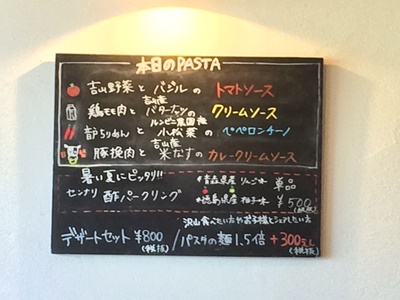 本日のPASTA
吉山野菜とバジルの トマトソース
吉山産
鶏モモ肉とバターナッツの クリームソース
ルンビニ農園産
静ちりめんと小松菜の ペペロンチーノ
吉山産
豚挽肉と米なすの カレークリームソース
暑い夏にピッタリ!!
センナリ 酢パークリング
青森県産りんご味
徳島県産柚子味
単品
¥500(税抜)
沢山食べたい方やお子様とシェアしたい方
デザートセット ¥800(税抜) / パスタの麺1.5倍 +300円(税抜)